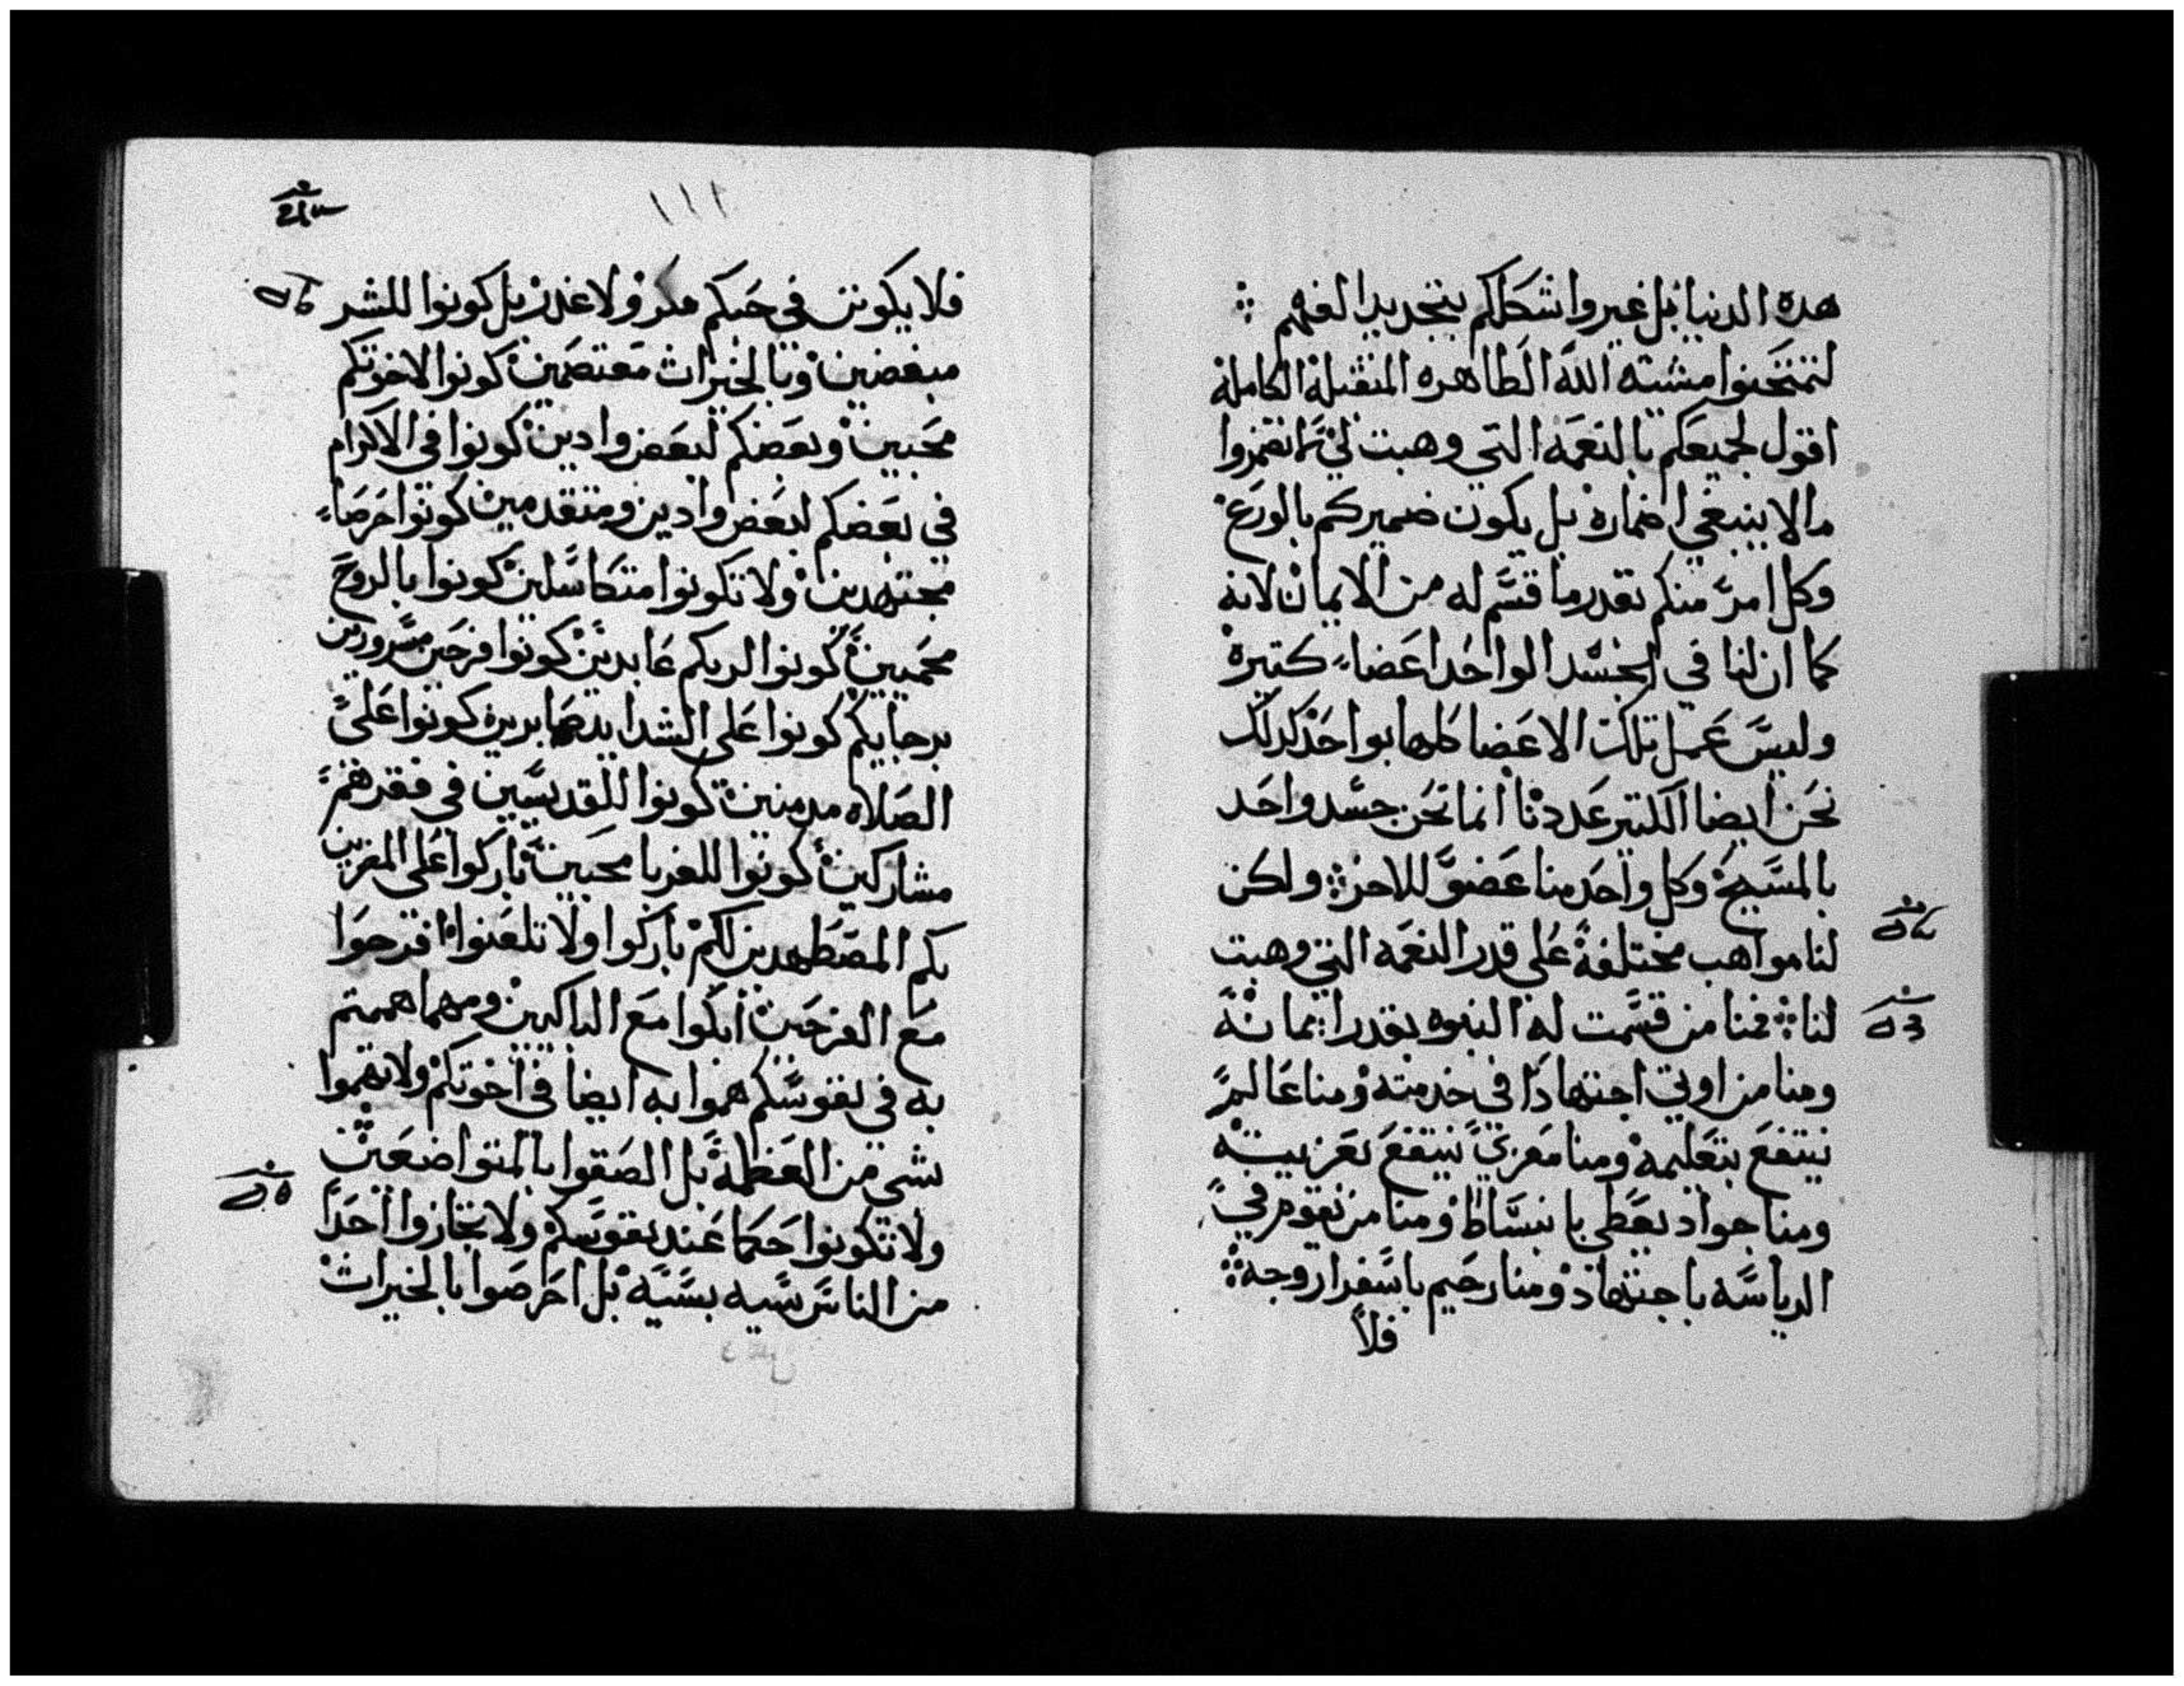 هده الدنيا بل غيروا شكلكم بتجديد الفهم
لتمتحنوا مشيه الله الطاهره المتقبله الكامله
اقول لجميعكم بالنعمه التي وهبت لي لا تضمروا
مالا ينبغي اضماره بل يكون ضميركم بالورع
وكل امرء منكم بقدر ما قسم له من الايمان لانه
كما ان لنا في الجسد الواحد اعضاء كتيرة
وليس عمل تلك الاعضا كلها بواحد كدلك
نحن ايضا الكتير عددنا انما نحن جسد واحد
بالمسيح وكل واحد منا عضو للاخر ولكن
لنا مواهب مختلفة على قدر النعمه التي وهبت
لنا فمنا من قسمت له النبوه بقدر ايمانه
ومنا من اوتي اجتهادا في خدمته ومنا عالم
ينتفع بتعليمه ومنا معزي ينتفع بتعزيته
ومنا جواد يعطي بانبساط ومنا من يقوم في
الرياسه باجتهاد ومنا رحيم باسفرار وجه
فلا
١١١
فلا يكونن في حبكم مكر ولا غدر بل كونوا للشر
مبغضين وبالخيرات معتصمين كونوا لاخوتكم
محبين وبعضكم لبعض وادين كونوا في الاكرام
في بعضكم لبعض وادين ومتقدمين كونوا حرصاء
مجتهدين ولا تكونوا متكاسلين كونوا بالروح
محميين كونوا لربكم عابدين كونوا فرحين مسرورين
برجايكم كونوا على الشدايد صابرين كونوا على
الصلاه مدمنين كونوا للقديسين في فقرهم
مشاركين كونوا للغربا محبين باركوا على المغرين
بكم المضطهدين لكم باركوا ولا تلعنوا افرحوا
مع الفرحين ابكوا مع الباكيين ومهما هممتم
به في نفوسكم هموا به ايضا في اخوتكم ولا تهموا
بشي من العظمة بل الصقوا بالمتواضعين
ولا تكونوا حكما عند نفوسكم ولا تجازوا احدا
من الناس سيه بسيه بل احرصوا بالخيرات